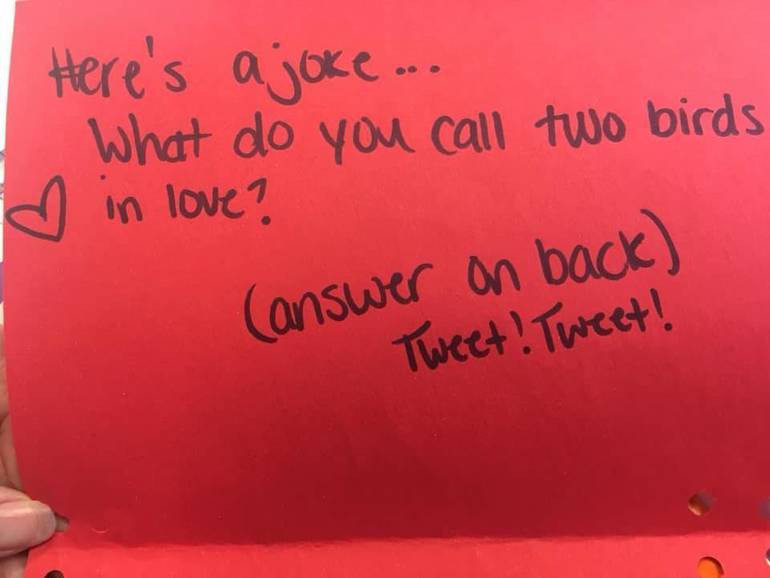 Here's a joke...
What do you call two birds
in love?
(answer on back)
Tweet! Tweet!